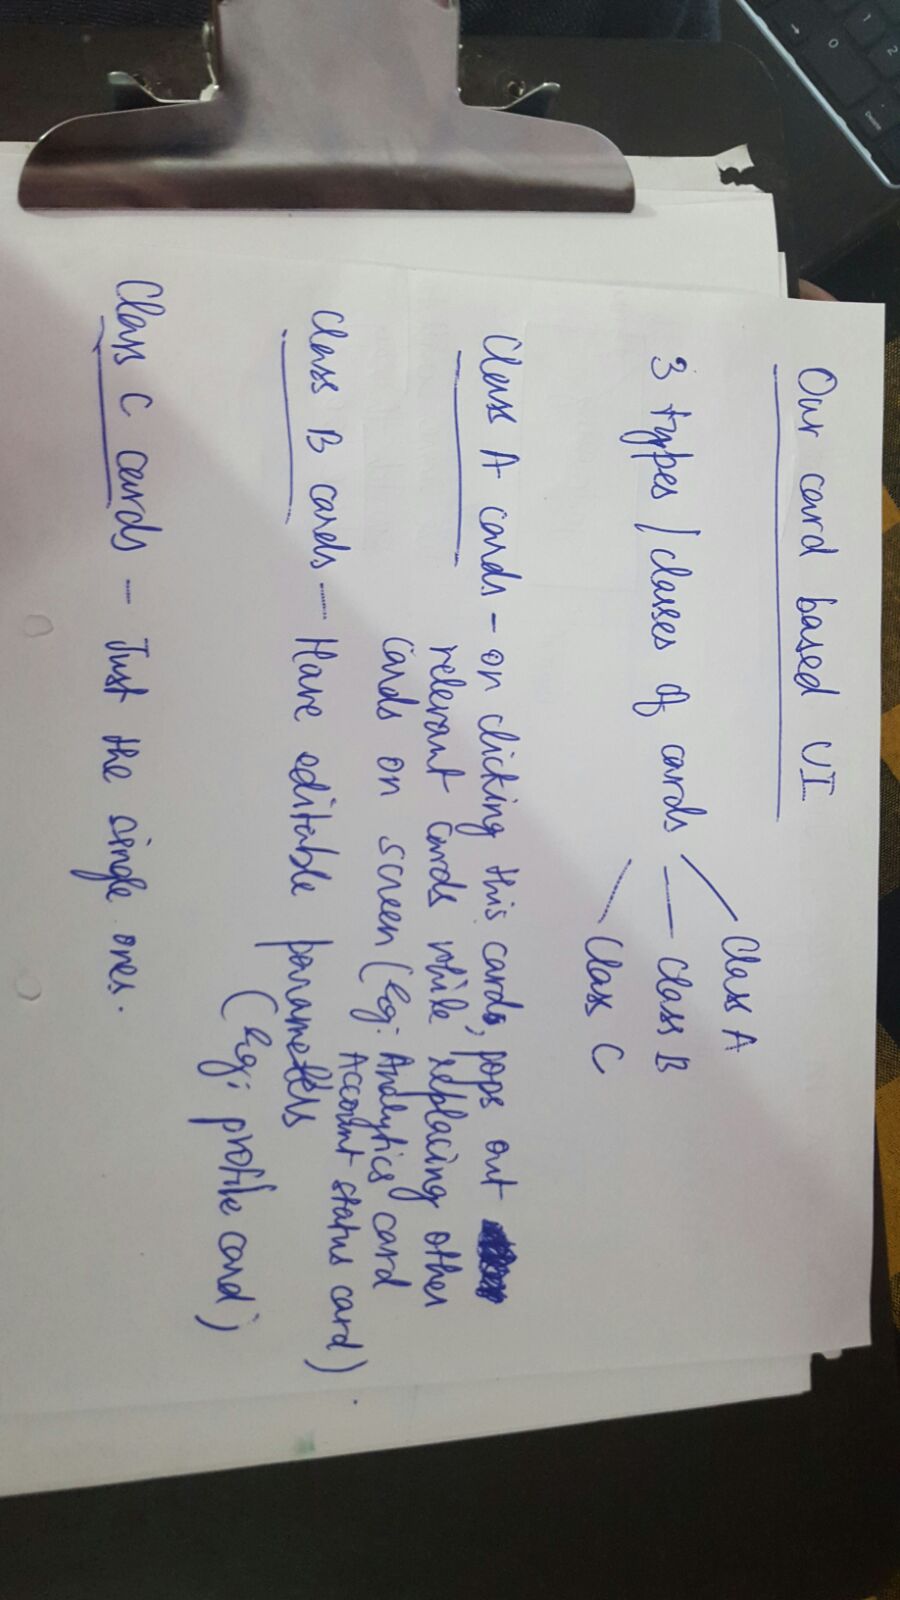 Our card based UI
3 types / classes of cards
Class A
Class B
Class C
Class A cards - on clicking this card, pops out
relevant cards while replacing other
cards on screen (Eg: Analytics card
Account status card).
Class B cards - Have editable parameters
(Eg: profile card)
Class C cards - Just the single ones.